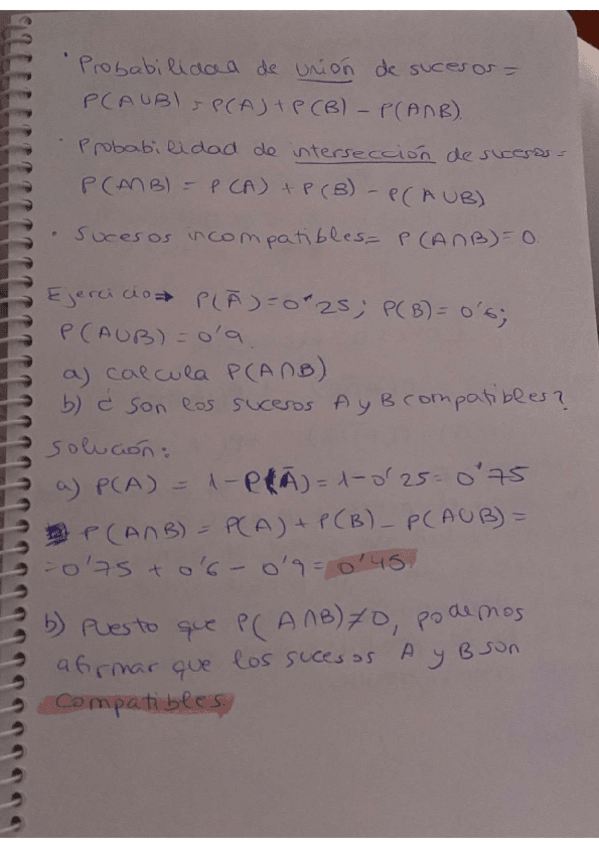 · Probabilidad de unión de sucesos =
P(A∪B) = P(A) + P(B) - P(A∩B)
· Probabilidad de intersección de sucesos =
P(A∩B) = P(A) + P(B) - P(A∪B)
· Sucesos incompatibles = P(A∩B) = 0
Ejercicio ⇒ P(Ā) = 0'25; P(B) = 0'6;
P(A∪B) = 0'9.
a) calcula P(A∩B)
b) ¿ son los sucesos A y B compatibles?
Solución:
a) P(A) = 1 - P(Ā) = 1 - 0'25 = 0'75
P(A∩B) = P(A) + P(B) - P(A∪B) =
= 0'75 + 0'6 - 0'9 = 0'45.
b) Puesto que P(A∩B) ≠ 0, podemos
afirmar que los sucesos A y B son
compatibles.